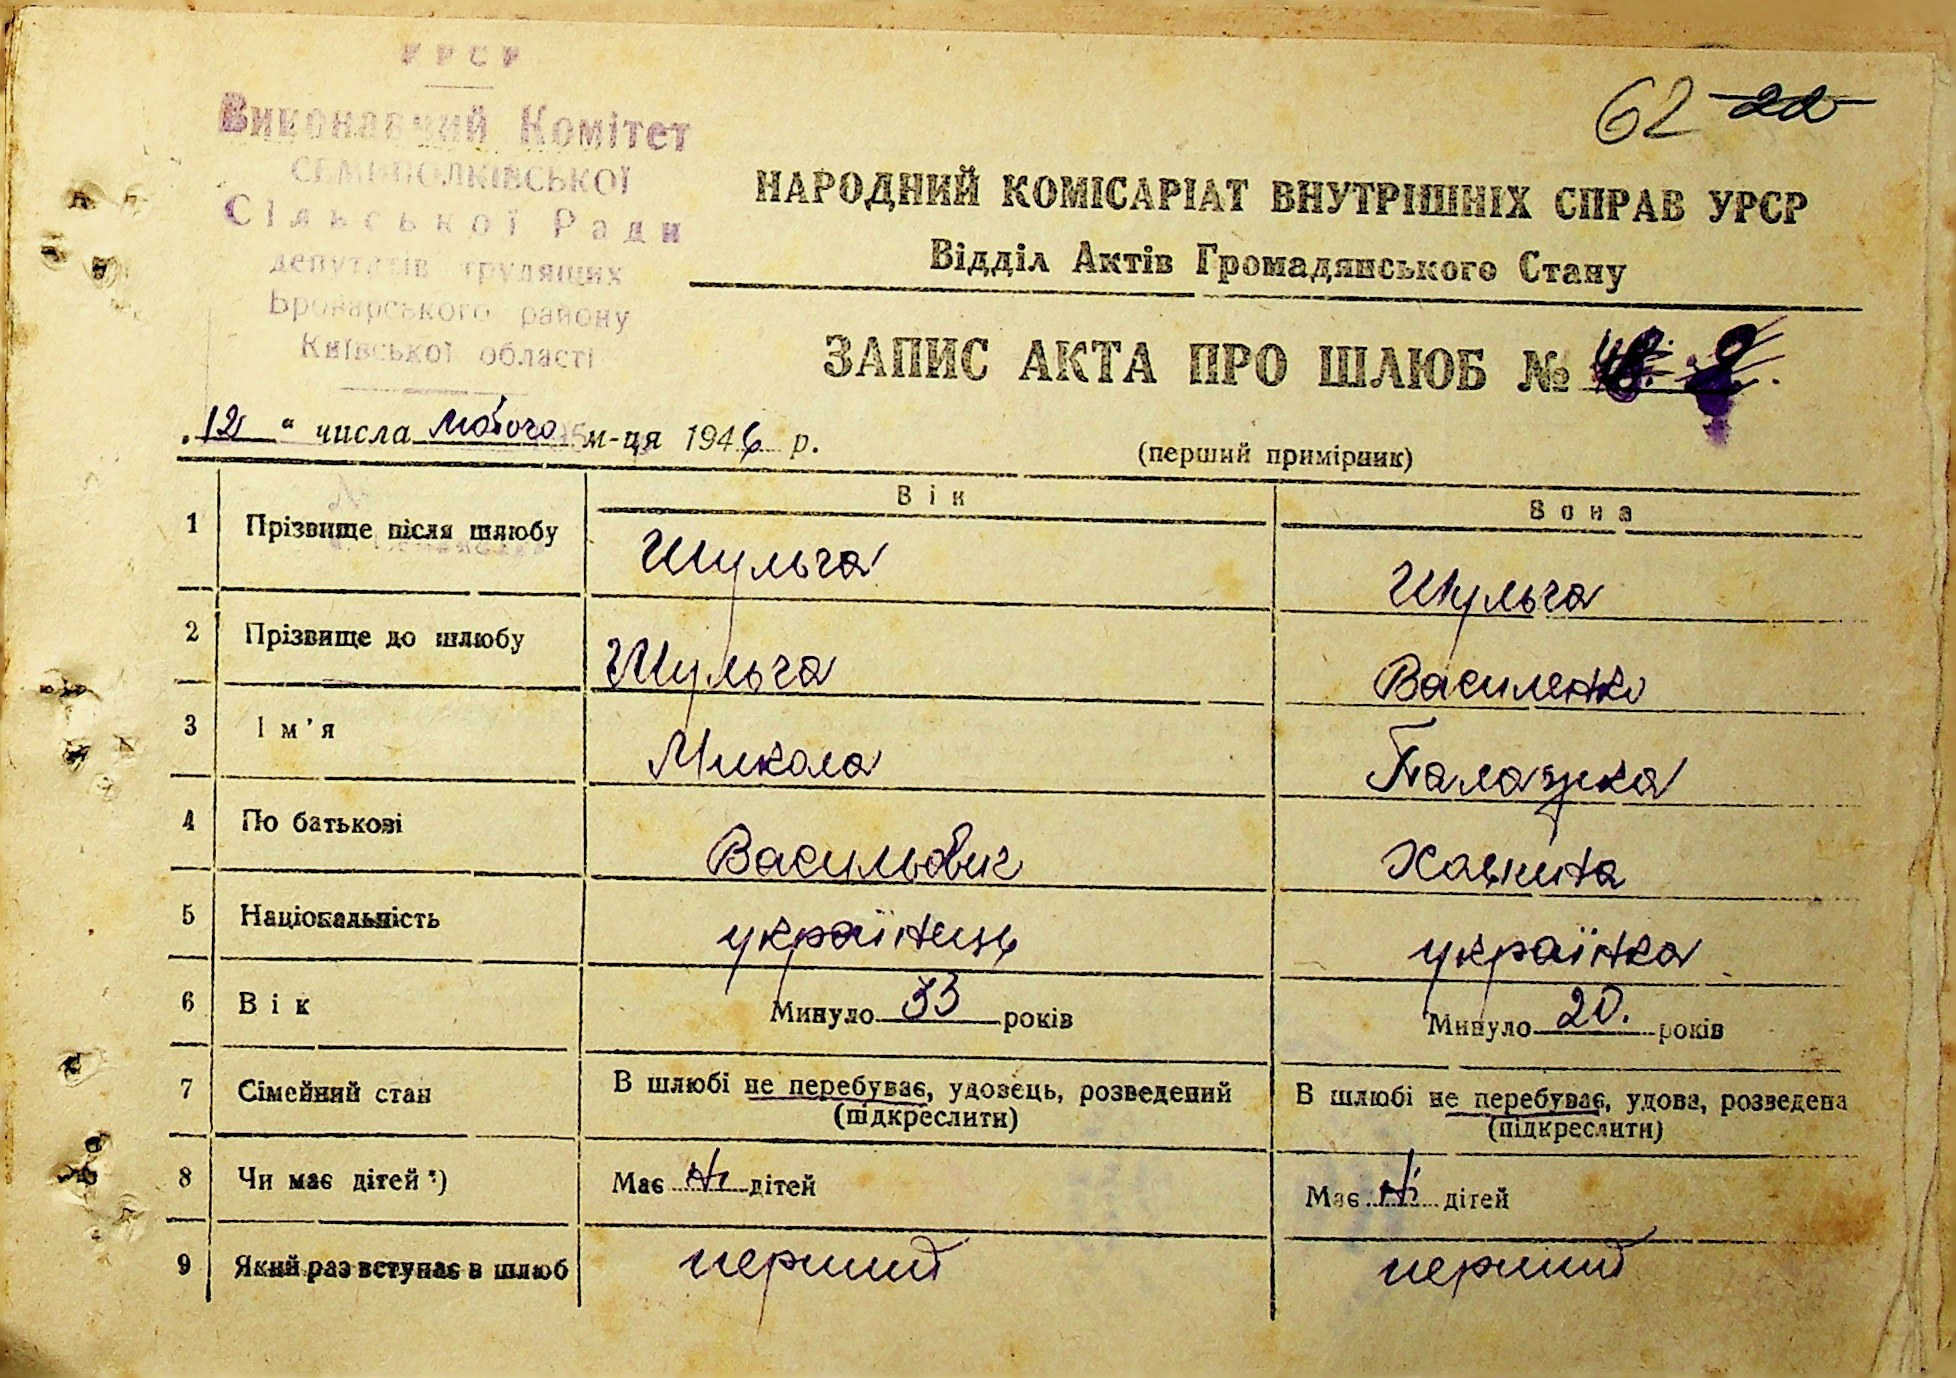 УРСР
Виконавчий Комітет
СЕМИПОЛКІВСЬКОЇ
Сільської Ради
депутатів трудящих
Броварського району
Київської області
62 22
НАРОДНИЙ КОМІСАРІАТ ВНУТРІШНІХ СПРАВ УРСР
Відділ Актів Громадянського Стану
ЗАПИС АКТА ПРО ШЛЮБ №
„12“ числа лютого м-ця 1946 р.
(перший примірник)
Він Вона
1 Прізвище після шлюбу Шульга Шульга
2 Прізвище до шлюбу Шульга Василенко
3 Ім'я Микола Палажка
4 По батькові Васильович
5 Національність українець українка
6 Вік Минуло 33 років Минуло 20. років
7 Сімейний стан В шлюбі не перебуває, удовець, розведений В шлюбі не перебуває, удова, розведена
(підкреслити) (підкреслити)
8 Чи має дітей *) Має ні дітей Має ні дітей
9 Який раз вступає в шлюб перший перший